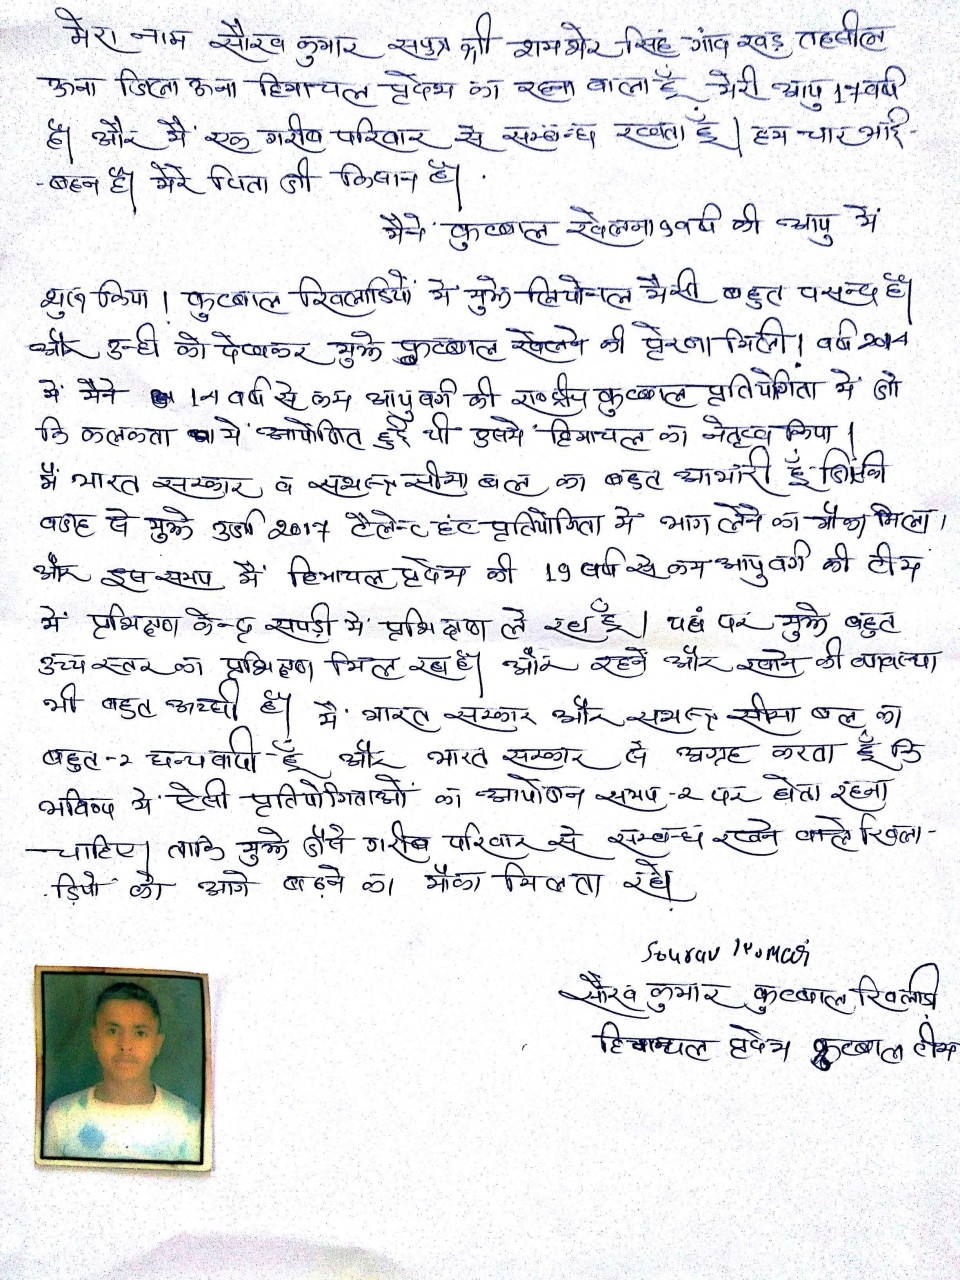 मेरा नाम सौरव कुमार सपुत्र श्री शमशेर सिंह गांव खड्ड तहसील
ऊना जिला ऊना हिमाचल प्रदेश का रहना वाला हूँ मेरी आयु 17 वर्ष
है। और मैं एक गरीब परिवार से सम्बन्ध रखता हूँ। हम चार भाई-
-बहन है। मेरे पिता जी किसान है।
मैने फुटबाल खेलना 9 वर्ष की आयु में
शुरु किया। फुटबाल खिलाडियों में मुझे लियोनल मैसी बहुत पसन्द है।
और उन्ही को देखकर मुझे फुटबाल खेलने की प्रेरणा मिली। वर्ष 2014
में मैने 14 वर्ष से कम आयु वर्ग की राष्ट्रीय फुटबाल प्रतियोगिता में जो
कि कलकता में आयोजित हुई थी उसमें हिमाचल का नेतृत्व किया।
मैं भारत सरकार व सशस्त्र सीमा बल का बहुत आभारी हूँ जिसकी
वजह से मुझे 2017 टैलेन्ट हंट प्रतियोगिता में भाग लेने का मौका मिला।
और इस समय मैं हिमाचल प्रदेश की 19 वर्ष से कम आयु वर्ग की टीम
में प्रशिक्षण केन्द्र सपड़ी में प्रशिक्षण ले रहा हूँ। यहां पर मुझे बहुत
उच्च स्तर का प्रशिक्षण मिल रहा है। और रहने और खाने की व्यवस्था
भी बहुत अच्छी है। मैं भारत सरकार और सशस्त्र सीमा बल का
बहुत-2 धन्यवादी हूँ और भारत सरकार से अग्रह करता हूँ कि
भविष्य में ऐसी प्रतियोगिताओं का आयोजन समय-2 पर होता रहना
चाहिए। ताकि मुझे जैसे गरीब परिवार से सम्बन्ध रखने वाले खिला-
ड़ियो को आगे बढ़ने का मौका मिलता रहे।
Sourav Kumar
सौरव कुमार फुटबाल खिलाड़ी
हिमाचल प्रदेश फुटबाल टीम